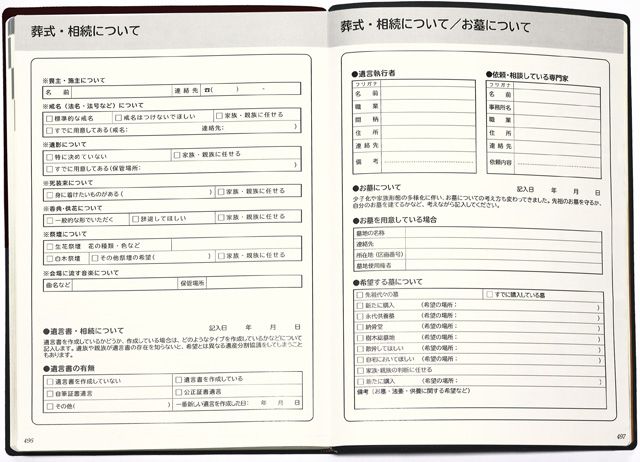 葬式・相続について
※喪主・施主について
名 前 連 絡 先 ☎( ) -
※戒名（法名・法号など）について
□標準的な戒名 □戒名はつけないでほしい □家族・親族に任せる
□すでに用意してある(戒名： 連絡先： )
※遺影について
□特に決めていない □家族・親族に任せる
□すでに用意してある(保管場所： )
※死装束について
□身に着けたいものがある( ) □家族・親族に任せる
※香典・供花について
□一般的な形でいただく □辞退してほしい □家族・親族に任せる
※祭壇について
□生花祭壇 花の種類・色など
□白木祭壇 □その他祭壇の希望( ) □家族・親族に任せる
※会場に流す音楽について
曲名など 保管場所
●遺言書・相続について 記入日 年 月 日
遺言書を作成しているかどうか、作成している場合は、どのようなタイプを作成しているかなどについて
記入します。遺族や親族が遺言書の存在を知らないと、希望とは異なる遺産分割協議をしてしまうこと
もあります。
●遺言書の有無
□遺言書を作成していない □遺言書を作成している
□自筆証書遺言 □公正証書遺言
□その他( ) 一番新しい遺言を作成した日： 年 月 日
496
葬式・相続について／お墓について
●遺言執行者
フリガナ
名 前
職 業
間 柄
住 所
連 絡 先
備 考
●依頼・相談している専門家
フリガナ
名 前
事務所名
職 業
住 所
連 絡 先
依頼内容
●お墓について 記入日 年 月 日
少子化や家族形態の多様化に伴い、お墓についての考え方も変わってきました。先祖のお墓を守るか、
自分のお墓を建てるかなど、考えながら記入してください。
●お墓を用意している場合
墓地の名称
連絡先
所在地（区画番号）
墓地使用権者
●希望する墓について
□先祖代々の墓 □すでに購入している墓
□新たに購入 (希望の場所： )
□永代供養墓 (希望の場所： )
□納骨堂 (希望の場所： )
□樹木葬墓地 (希望の場所： )
□散骨してほしい (希望の場所： )
□自宅においてほしい (希望の場所： )
□家族・親族の判断に任せる
□新たに購入 (希望の場所： )
備考（お墓・法要・供養に関する希望など）
497